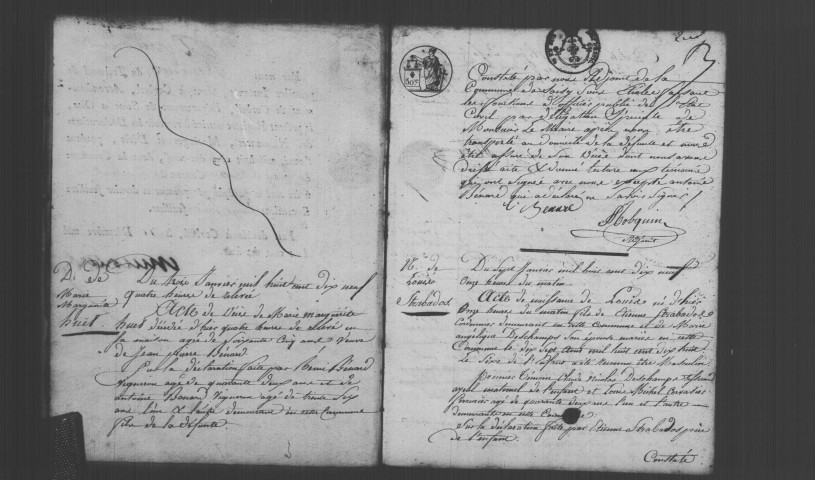 D. de
Marie
Marguerite
huet
Du trois Janvier mil huit cent dix neuf
quatre heure de relevé
Acte de Décès de Marie Marguerite
huet décédée d'hier quatre heure de relevé en
sa maison age de soixante cinq ans veuve
de Jean pierre Bénard
Sur la déclaration faite par Bénard
Vigneron age de quarante deux ans et de
antoine Benard Vigneron agé de trente six
ans l'un & l'autre demeurant en cette Commune
fils de la défunte
50c
Constaté par nous Adjoint de la
Commune de Soisy Sous Etiolle faisant
les fonctions d'officier public de l'Etat
Civil par délégation Speciale de
Monsieur Le Maire après nous être
transporté au domicile de la défunte et nous
être assuré de Son Décès dont nous avons
dressé acte & donné lecture aux temoins
qui ont Signé avec nous excepté antoine
Bénard qui a déclaré ne Savoir Signer
Benard
Hobquin
Adjoint
N. de
Louise
Strabados
Du Sept Janvier mil huit cent dix neuf
Onze heure du matin
Acte de naissance de Louise né d'hier
Onze heure du matin fils de Etienne Strabados
Cordonnier demeurant en cette Commune et de Marie
angélique Deschamps son épouse mariés en cette
Commune le dix Sept aout mil huit cent dix huit
Le Sexe de l'enfant a été reconnu être Masculin
Premier Temoin Claude Nicolas Deschamps
ayeul maternel de l'enfant et Louis Michel
age de quarante deux ans l'un et l'autre
demeurants en cette Commune
Sur la déclaration faite par Etienne Strabados père
de l'enfant
Constaté